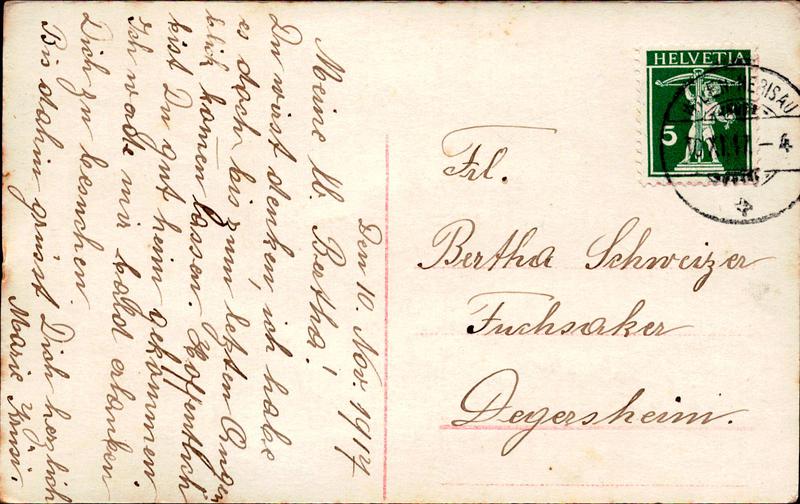 Den 10. Nov. 1917
Meine lb. Bertha!
Du wirst denken, ich habe
es doch bis zum letzten Augen
blick kom̄en lassen. Hoffentlich
bist Du gut heim gekommen
Ich mir bald erlauben
Dich zu besuchen.
Bis dahin grüsst Dich herzlich
Marie
HELVETIA
5
HERISAU
XI.17.-4
Frl.
Bertha Schweizer
Fuchsaker
Degersheim.